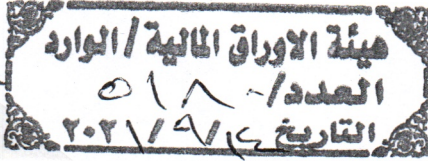 هيئة الاوراق المالية / الوارد
العدد / ٥١٨٠
التاريخ ١٤ / ٩ / ٢٠٢١